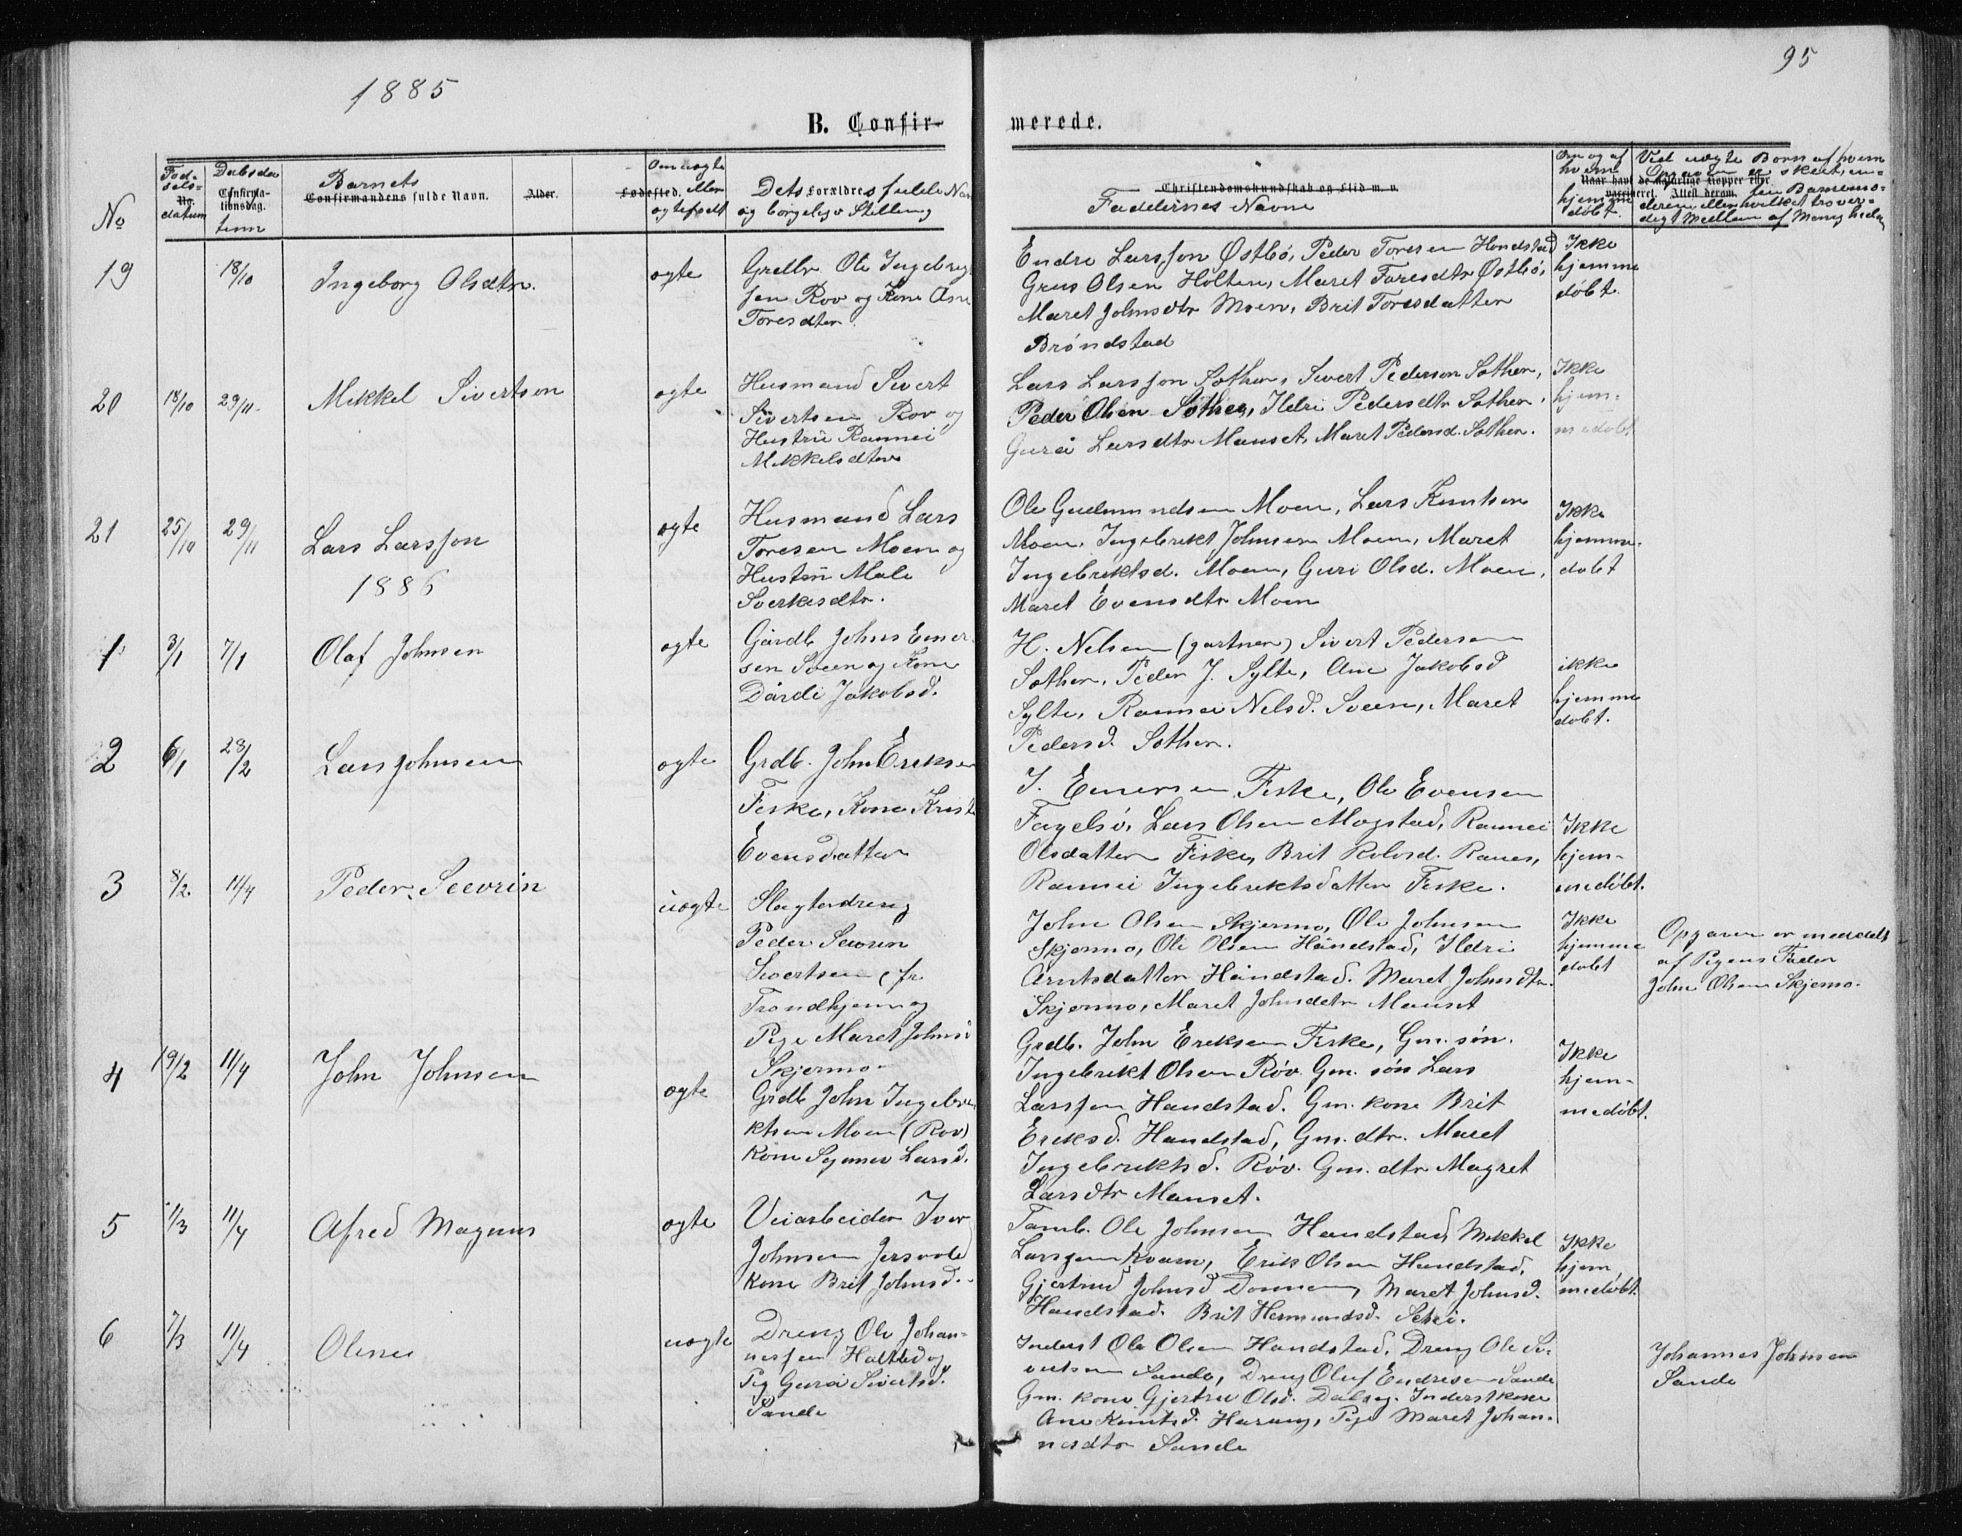 1885
95
B. Confirmerede.
No
Fødselsdatum
No.
Daabsdatum
Confirmationsdag.
Barnets
Confirmandens fulde Navn.
Alder.
Fødested.
Om uægte eller ægtefødt
Dets Forældres fulde Navne og borgelige Stilling
Christendomskundskab og Flid m. v.
Faddernes Navne
Om og af hvem hjemmedøbt.
Naar havt de naturlige Kopper eller vaccineret. Attest derom.
19
18/10
Ingeborg Olsdtr.
ægte
Grdbr. Ole Ingebrigt-
sen Røv og Kone Ane
Toresdtr.
Endre Larsson Østbø, Peder Toresen Handstad
Grus Olsen Holten, Maret Toresdtr Østbø,
Maret Johnsdtr Moen, Brit Toresdatter
Brøndstad
Ikke
hjemme
døbt.
20
18/10
29/11
Mikkel Sivertson
ægte
Husmand Sivert
Sivertsen Røv og
Hustru Rannei
Mikkelsdtr
Lars Larsson Sæther, Sivert Pederson Sæther,
Peder Olsen Sæther, Ildri Pedersdtr Sæther,
Guri Larsdtr Mauset, Maret Pedersd. Sæther.
Ikke
hjem-
medøbt
21
25/10
29/11
Lars Larsson
ægte
Husmand Lars
Toresen Moen og
Hustru Male
Sverkesdtr.
Ole Gudmundsen Moen, Lars Knutsen
Moen, Ingebrikt Johnsen Moen, Maret
Ingebriktsd. Moen, Guri Olsd. Moen,
Maret Evensdtr Moen
Ikke
hjemme-
døbt
1886
1
3/1
7/1
Olaf Johnsen
ægte
Gårdb. Johns Einer-
sen Sveen og Kone
Dårdi Jakobsd.
H. Nelsen (gartner) Sivert Pedersen
Sæther, Peder J. Sylte, Ane Jakobsd
Sylte, Rannei Nelsd. Sveen, Maret
Pedersd. Sæther.
ikke
hjemme
døbt.
2
6/1
28/2
Lars Johnsen
ægte
Grdb. John Eriksen
Fiske, Kone Kristi
Evensdatter
I. Einersen Fiske, Ole Evensen
Fagelsø, Lars Olsen Mogstad, Rannei
Olsdatter Fiske, Brit Rolvsd. Ranes,
Rannei Ingebriktsdatter Fiske.
Ikke
hjem-
medøbt.
3
8/2
11/4
Peder Seevrin
uægte
Slagterdreng
Peder Sevrin
Sivertsen (fr.
Trondhjem og
Pige Maret Johnsd
Skjermo
John Olsen Skjermo, Ole Johnsen
Skjermo, Ole Olsen Håndstad, Ildri
Arntsdatter Håndstad. Maret Johnsdtr.
Skjermo, Maret Johnsdtr Mauset
Ikke
hjemme
døbt
Opgaven er meddelt
af Pigens Fader
John Olsen Skjermo.
4
19/2
11/4
John Johnsen
ægte
Grdb John Ingebri-
ktsen Moen (Røv)
kone Synnev Larsd.
Grdb. John Eriksen Fiske, Gm. søn.
Ingebrikt Olsen Røv. Gm. søn Lars
Larssen Handstad. Gm. kone Brit
Eriksd. Handstad, Gm. dtr. Maret
Ingebriktsd. Røv. Gm. dtr Magret
Larsdtr Mauset.
Ikke
hjem-
medøbt.
5
1/3
11/4
Afred Magnus
ægte
Veiarbeider Iver
Johnsen Jersvole
kone Brit Johnsd.
Tamb. Ole Johnsen Handstad, Mikkel
Larssen Kvam, Erik Olsen Handstad,
Gjertrud Johnsd Donnem, Maret Johnsd.
Handstad. Brit Hermundsd. Settei.
Ikke
hjem
medøbt.
6
7/3
11/4
Oline
uægte
Dreng Ole Johan-
nessen Halted og
Pig Guri Sivertsd.
Sande
Inderst Ole Olsen Handstad, Dreng Ole Si-
vertsen Sande, Dreng Oluf Endresen Sande
Gm. kone Gjertru Olsd. Dalseg. Inderstkone
Ane Knutsd. Harang, Pige Maret Johan-
nesdtr Sande
Johannes Johnsen
Sande